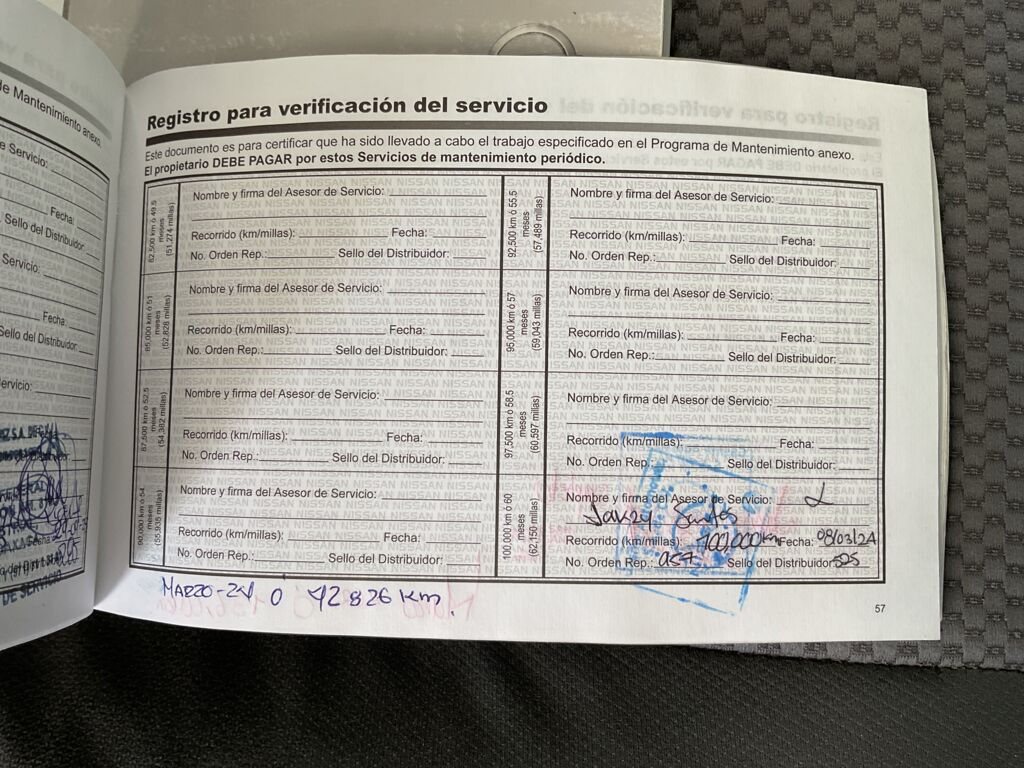 de Mantenimiento anexo.
Fecha:
Sello del Distribuidor:
Servicio:
Fecha:
Sello del Distribuidor:
DE SERVICIO
Registro para verificación del servicio
Este documento es para certificar que ha sido llevado a cabo el trabajo especificado en el Programa de Mantenimiento anexo.
El propietario DEBE PAGAR por estos Servicios de mantenimiento periódico.
82,500 km ó 49.5
meses
(51,274 millas)
Nombre y firma del Asesor de Servicio:
Recorrido (km/millas): Fecha:
No. Orden Rep.: Sello del Distribuidor:
85,000 km ó 51
meses
(52,828 millas)
Nombre y firma del Asesor de Servicio:
Recorrido (km/millas): Fecha:
No. Orden Rep.: Sello del Distribuidor:
87,500 km ó 52.5
meses
(54,382 millas)
Nombre y firma del Asesor de Servicio:
Recorrido (km/millas): Fecha:
No. Orden Rep.: Sello del Distribuidor:
90,000 km ó 54
meses
(55,935 millas)
Nombre y firma del Asesor de Servicio:
Recorrido (km/millas): Fecha:
No. Orden Rep.: Sello del Distribuidor:
92,500 km ó 55.5
meses
(57,489 millas)
Nombre y firma del Asesor de Servicio:
Recorrido (km/millas): Fecha:
No. Orden Rep.: Sello del Distribuidor:
95,000 km ó 57
meses
(59,043 millas)
Nombre y firma del Asesor de Servicio:
Recorrido (km/millas): Fecha:
No. Orden Rep.: Sello del Distribuidor:
97,500 km ó 58.5
meses
(60,597 millas)
Nombre y firma del Asesor de Servicio:
Recorrido (km/millas): Fecha:
No. Orden Rep.: Sello del Distribuidor:
100,000 km ó 60
meses
(62,150 millas)
Nombre y firma del Asesor de Servicio:
Santos
Recorrido (km/millas): 100,000km Fecha: 08/03/24
No. Orden Rep.: Sello del Distribuidor: SDS
MARZO-24 0 42826 Km.
57